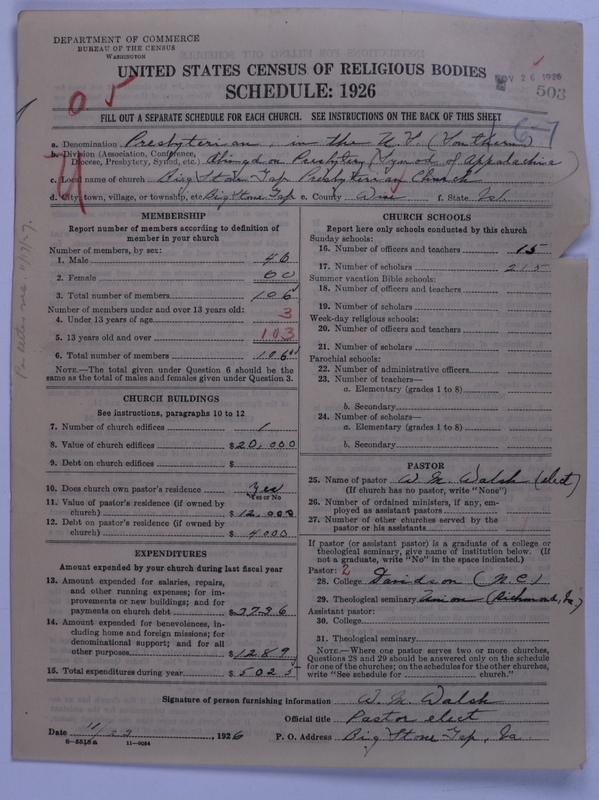 DEPARTMENT OF COMMERCE
BUREAU OF THE CENSUS
WASHINGTON
UNITED STATES CENSUS OF RELIGIOUS BODIES
NOV 26 1926
503
SCHEDULE: 1926
05
FILL OUT A SEPARATE SCHEDULE FOR EACH CHURCH. SEE INSTRUCTIONS ON THE BACK OF THIS SHEET
67
a. Denomination Presbyterian, in the U.S. (Southern)
b. Division (Association, Conference, Diocese, Presbytery, Synod, etc.) Abingdon Presbytery (Synod of Appalachia)
c. Local name of church Big Stone Gap Presbyterian Church
d. City, town, village, or township, etc. Big Stone Gap e. County Wise f. State Va.
MEMBERSHIP
Report number of members according to definition of
member in your church
Number of members, by sex:
1. Male 46
2. Female 60
3. Total number of members 106
Number of members under and over 13 years old:
4. Under 13 years of age 3
5. 13 years old and over 103
6. Total number of members 106
NOTE.—The total given under Question 6 should be the
same as the total of males and females given under Question 3.
CHURCH BUILDINGS
See instructions, paragraphs 10 to 12
7. Number of church edifices 1
8. Value of church edifices $20,000
9. Debt on church edifices $
10. Does church own pastor's residence Yes
Yes or No
11. Value of pastor's residence (if owned by
church) $12,000
12. Debt on pastor's residence (if owned by
church) $4000
EXPENDITURES
Amount expended by your church during last fiscal year
13. Amount expended for salaries, repairs,
and other running expenses; for im-
provements or new buildings; and for
payments on church debt $3736
14. Amount expended for benevolences, in-
cluding home and foreign missions; for
denominational support; and for all
other purposes $1289
15. Total expenditures during year $5025
CHURCH SCHOOLS
Report here only schools conducted by this church
Sunday schools:
16. Number of officers and teachers 15
17. Number of scholars 215
Summer vacation Bible schools:
18. Number of officers and teachers
19. Number of scholars
Week-day religious schools:
20. Number of officers and teachers
21. Number of scholars
Parochial schools:
22. Number of administrative officers
23. Number of teachers—
a. Elementary (grades 1 to 8)
b. Secondary
24. Number of scholars—
a. Elementary (grades 1 to 8)
b. Secondary
PASTOR
25. Name of pastor W. M. Walsh (elect)
(If church has no pastor, write "None")
26. Number of ordained ministers, if any, em-
ployed as assistant pastors
27. Number of other churches served by the
pastor or his assistants
If pastor (or assistant pastor) is a graduate of a college or
theological seminary, give name of institution below. (If
not a graduate, write "No" in the space indicated.)
Pastor: 2
28. College Davidson (N.C.)
29. Theological seminary Union (Richmond, Va.)
Assistant pastor:
30. College
31. Theological seminary
NOTE.—Where one pastor serves two or more churches,
Questions 28 and 29 should be answered only on the schedule
for one of the churches; on the schedules for the other churches,
write "See schedule for church."
Signature of person furnishing information W. M. Walsh
Official title Pastor elect
Date 11/22, 1926 P. O. Address Big Stone Gap, Va
8-5515a 11-9084